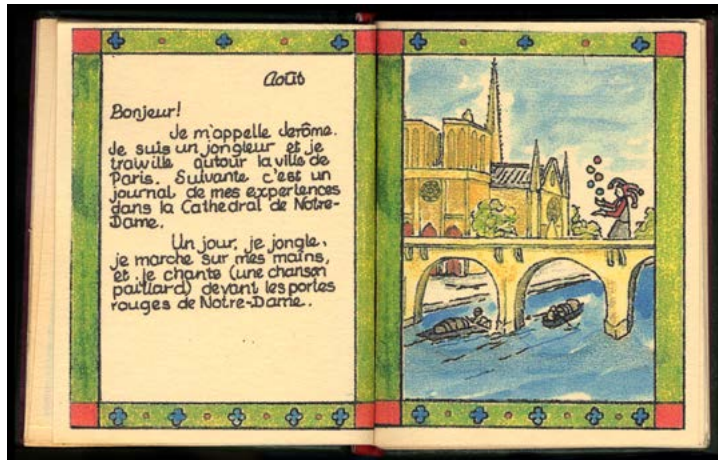 Août
Bonjeur!
Je m'appelle Jerôme.
Je suis un jongleur et je
trawille autour la ville de
Paris. Suivante c'est un
journal de mes experiences
dans la Cathedral de Notre-
Dame.
Un jour, je jongle,
je marche sur mes mains,
et je chante (une chanson
paillard) devant les portes
rouges de Notre-Dame.